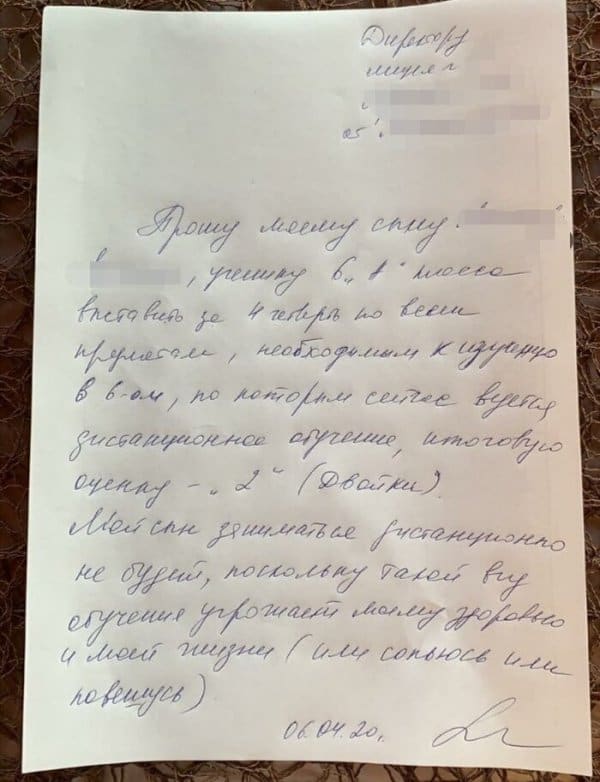 Директору
лицея
от
Прошу моему сыну
, ученику 6 „А" класса
выставить за 4 четверть по всем
предметам, необходимым к изучению
в 6-ом, по которым сейчас ведется
дистанционное обучение, итоговую
оценку – „2" (Двойки).
Мой сын заниматься дистанционно
не будет, поскольку такой вид
обучения угрожает моему здоровью
и моей жизни (или сопьюсь или
повешусь)
06.04.20.